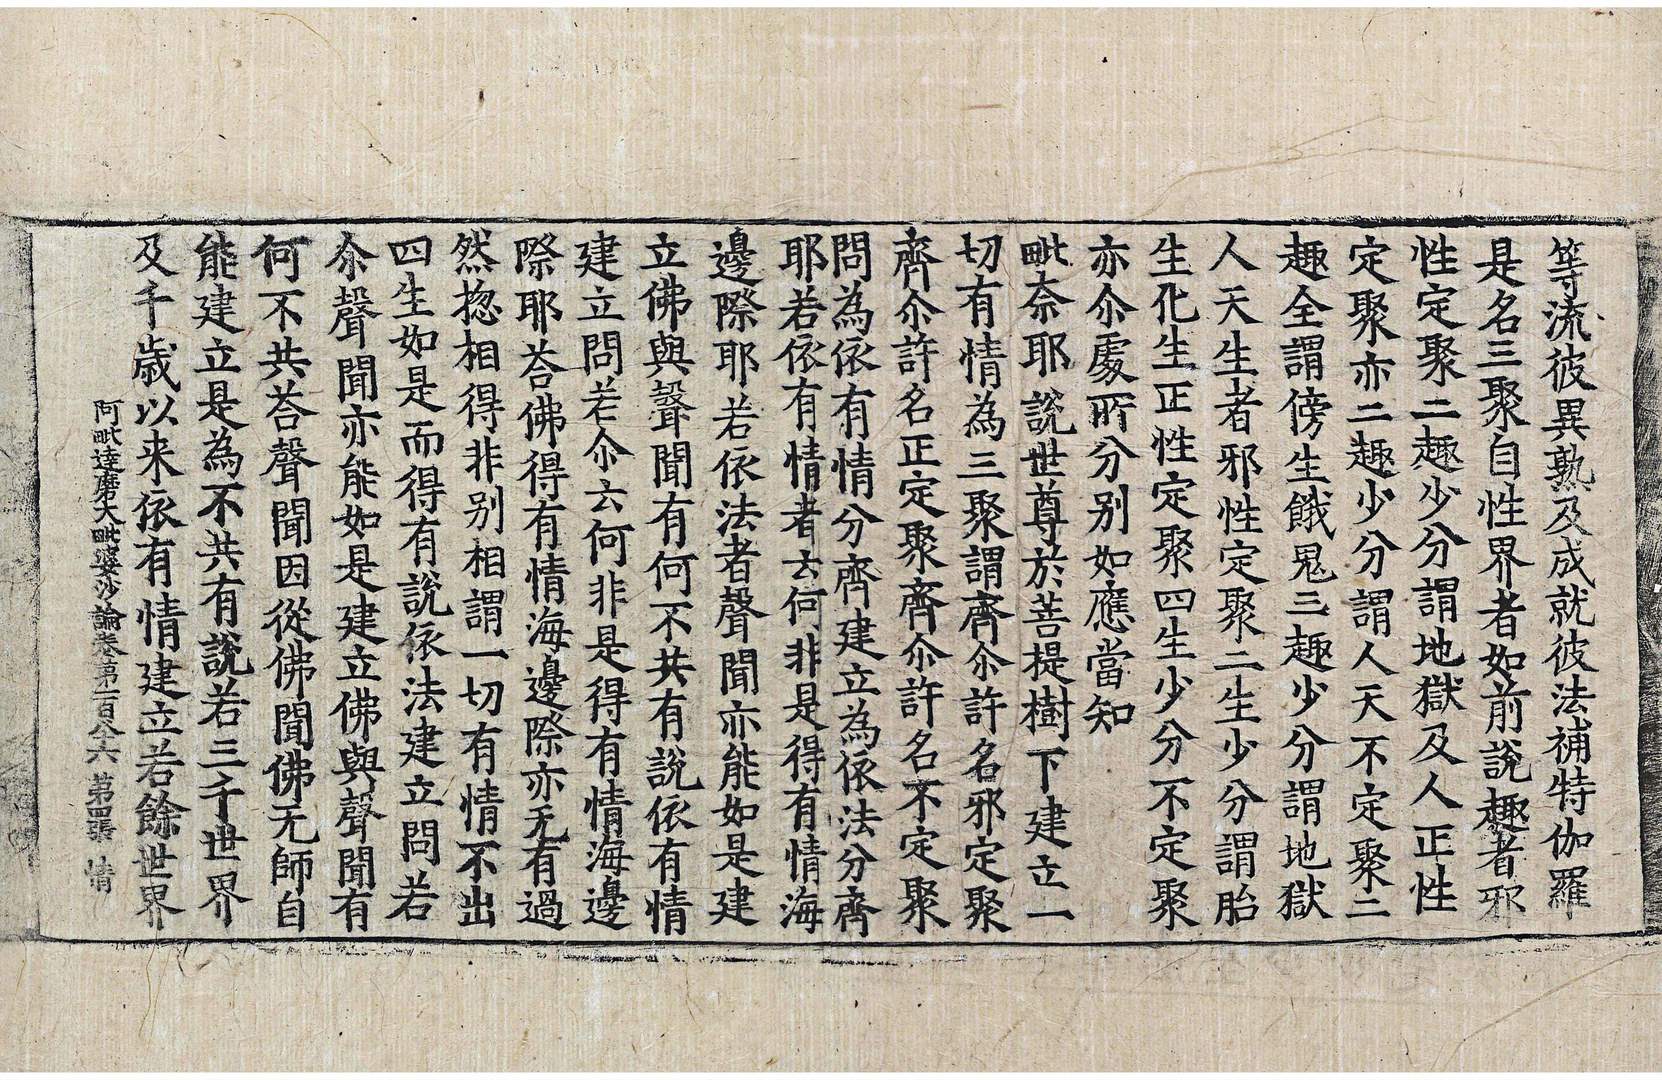 等流彼異熟及成就彼法補特伽羅
是名三聚自性界者如前說趣者邪
性定聚二趣少分謂地獄及人正性
定聚亦二趣少分謂人天不定聚二
趣全謂傍生餓鬼三趣少分謂地獄
人天生者邪性定聚二生少分謂胎
生化生正性定聚四生少分不定聚
亦尒處所分別如應當知
毗奈耶說世尊於菩提樹下建立一
切有情為三聚謂齊尒許名邪定聚
齊尒許名正定聚齊尒許名不定聚
問為依有情分齊建立為依法分齊
耶若依有情者云何非是得有情海
邊際耶若依法者聲聞亦能如是建
立佛與聲聞有何不共有說依有情
建立問若尒云何非是得有情海邊
際耶荅佛得有情海邊際亦无有過
然揔相得非別相謂一切有情不出
四生如是而得有說依法建立問若
尒聲聞亦能如是建立佛與聲聞有
何不共荅聲聞因從佛聞佛无師自
能建立是為不共有說若三千世界
及千歲以来依有情建立若餘世界
阿毗達磨大毗婆沙論卷第一百八十六 第四張 情